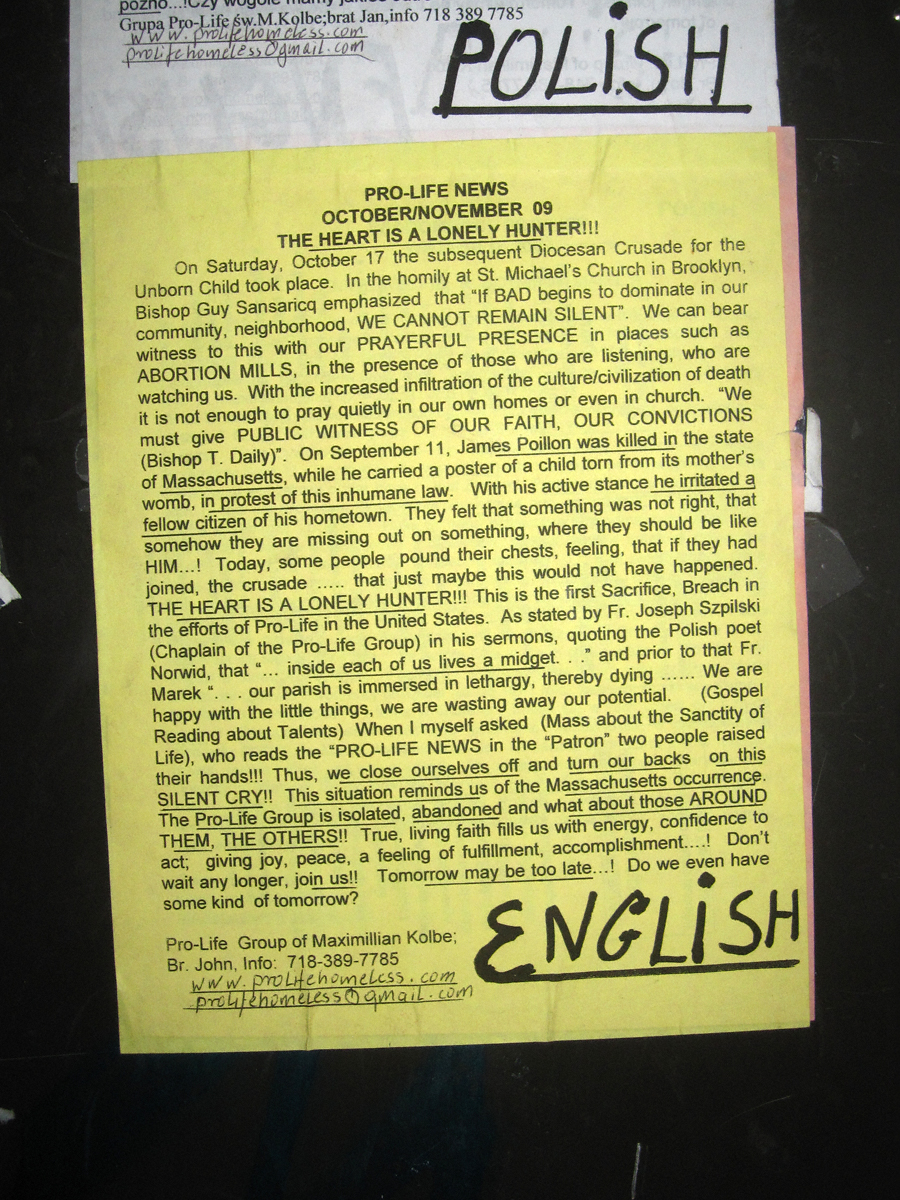 Grupa Pro-Life św.M.Kolbe;brat Jan,info 718 389 7785
www.prolifehomeless.com
prolifehomeless@gmail.com
POLISH
PRO-LIFE NEWS
OCTOBER/NOVEMBER 09
THE HEART IS A LONELY HUNTER!!!
On Saturday, October 17 the subsequent Diocesan Crusade for the
Unborn Child took place. In the homily at St. Michael's Church in Brooklyn,
Bishop Guy Sansaricq emphasized that "If BAD begins to dominate in our
community, neighborhood, WE CANNOT REMAIN SILENT". We can bear
witness to this with our PRAYERFUL PRESENCE in places such as
ABORTION MILLS, in the presence of those who are listening, who are
watching us. With the increased infiltration of the culture/civilization of death
it is not enough to pray quietly in our own homes or even in church. "We
must give PUBLIC WITNESS OF OUR FAITH, OUR CONVICTIONS
(Bishop T. Daily)". On September 11, James Poillon was killed in the state
of Massachusetts, while he carried a poster of a child torn from its mother's
womb, in protest of this inhumane law. With his active stance he irritated a
fellow citizen of his hometown. They felt that something was not right, that
somehow they are missing out on something, where they should be like
HIM...! Today, some people pound their chests, feeling, that if they had
joined, the crusade ..... that just maybe this would not have happened.
THE HEART IS A LONELY HUNTER!!! This is the first Sacrifice, Breach in
the efforts of Pro-Life in the United States. As stated by Fr. Joseph Szpilski
(Chaplain of the Pro-Life Group) in his sermons, quoting the Polish poet
Norwid, that "... inside each of us lives a midget. . ." and prior to that Fr.
Marek ". . . our parish is immersed in lethargy, thereby dying ...... We are
happy with the little things, we are wasting away our potential. (Gospel
Reading about Talents) When I myself asked (Mass about the Sanctity of
Life), who reads the "PRO-LIFE NEWS in the "Patron" two people raised
their hands!!! Thus, we close ourselves off and turn our backs on this
SILENT CRY!! This situation reminds us of the Massachusetts occurrence.
The Pro-Life Group is isolated, abandoned and what about those AROUND
THEM, THE OTHERS!! True, living faith fills us with energy, confidence to
act; giving joy, peace, a feeling of fulfillment, accomplishment....! Don't
wait any longer, join us!! Tomorrow may be too late...! Do we even have
some kind of tomorrow?
Pro-Life Group of Maximillian Kolbe;
Br. John, Info: 718-389-7785
www.prolifehomeless.com
prolifehomeless@gmail.com
ENGLISH